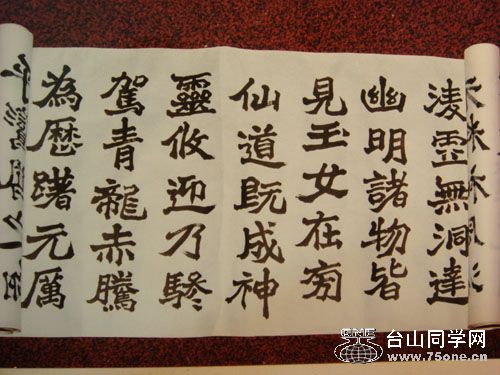 凌虛無洞達
幽明諸物皆
見玉女在旁
仙道既成神
靈攸迎乃驂
駕青龍赤騰
為歷躇元厲
台山同学网
www.75one.cn